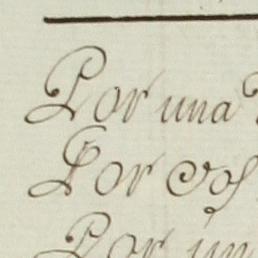 Por una
Por
Por un